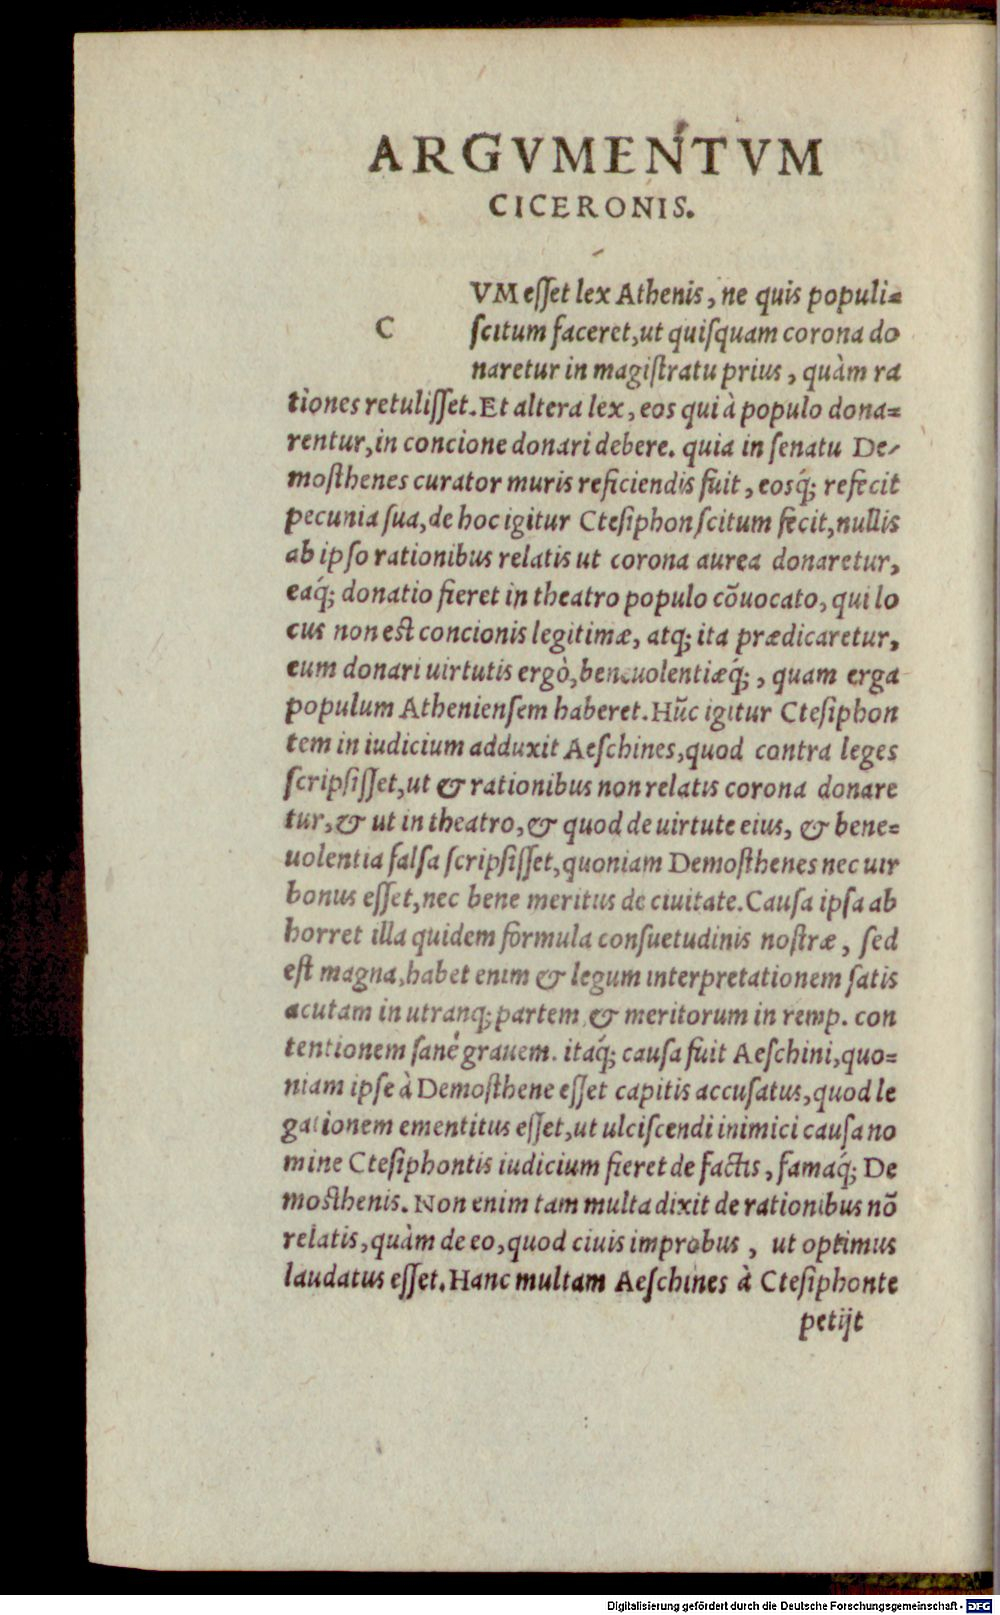 ARGVMENTVM
CICERONIS.
CVM esset lex Athenis, ne quis populi=
scitum faceret, ut quisquam corona do
naretur in magistratu prius, quàm ra
tiones retulisset. Et altera lex, eos qui à populo dona=
rentur, in concione donari debere. quia in senatu De-
mosthenes curator muris reficiendis fuit, eosq́; refecit
pecunia sua, de hoc igitur Ctesiphon scitum fecit, nullis
ab ipso rationibus relatis ut corona aurea donaretur,
eaq́; donatio fieret in theatro populo cõuocato, qui lo
cus non est concionis legitimæ, atq; ita prædicaretur,
eum donari uirtutis ergò, beneuolentiæq́;, quam erga
populum Atheniensem haberet. Hũc igitur Ctesiphon
tem in iudicium adduxit Aeschines, quod contra leges
scripsisset, ut & rationibus non relatis corona donare
tur, & ut in theatro, & quod de uirtute eius, & bene=
uolentia falsa scripsisset, quoniam Demosthenes nec uir
bonus esset, nec bene meritus de ciuitate. Causa ipsa ab
horret illa quidem formula consuetudinis nostræ, sed
est magna, habet enim & legum interpretationem satis
acutam in utranq; partem, & meritorum in remp. con
tentionem sanè grauem. itaq́; causa fuit Aeschini, quo=
niam ipse à Demosthene esset capitis accusatus, quod le
gationem ementitus esset, ut ulciscendi inimici causa no
mine Ctesiphontis iudicium fieret de factis, famaq́; De
mosthenis. Non enim tam multa dixit de rationibus nõ
relatis, quàm de eo, quod ciuis improbus, ut optimus
laudatus esset. Hanc multam Aeschines à Ctesiphonte
petijt
Digitalisierung gefördert durch die Deutsche Forschungsgemeinschaft - DFG